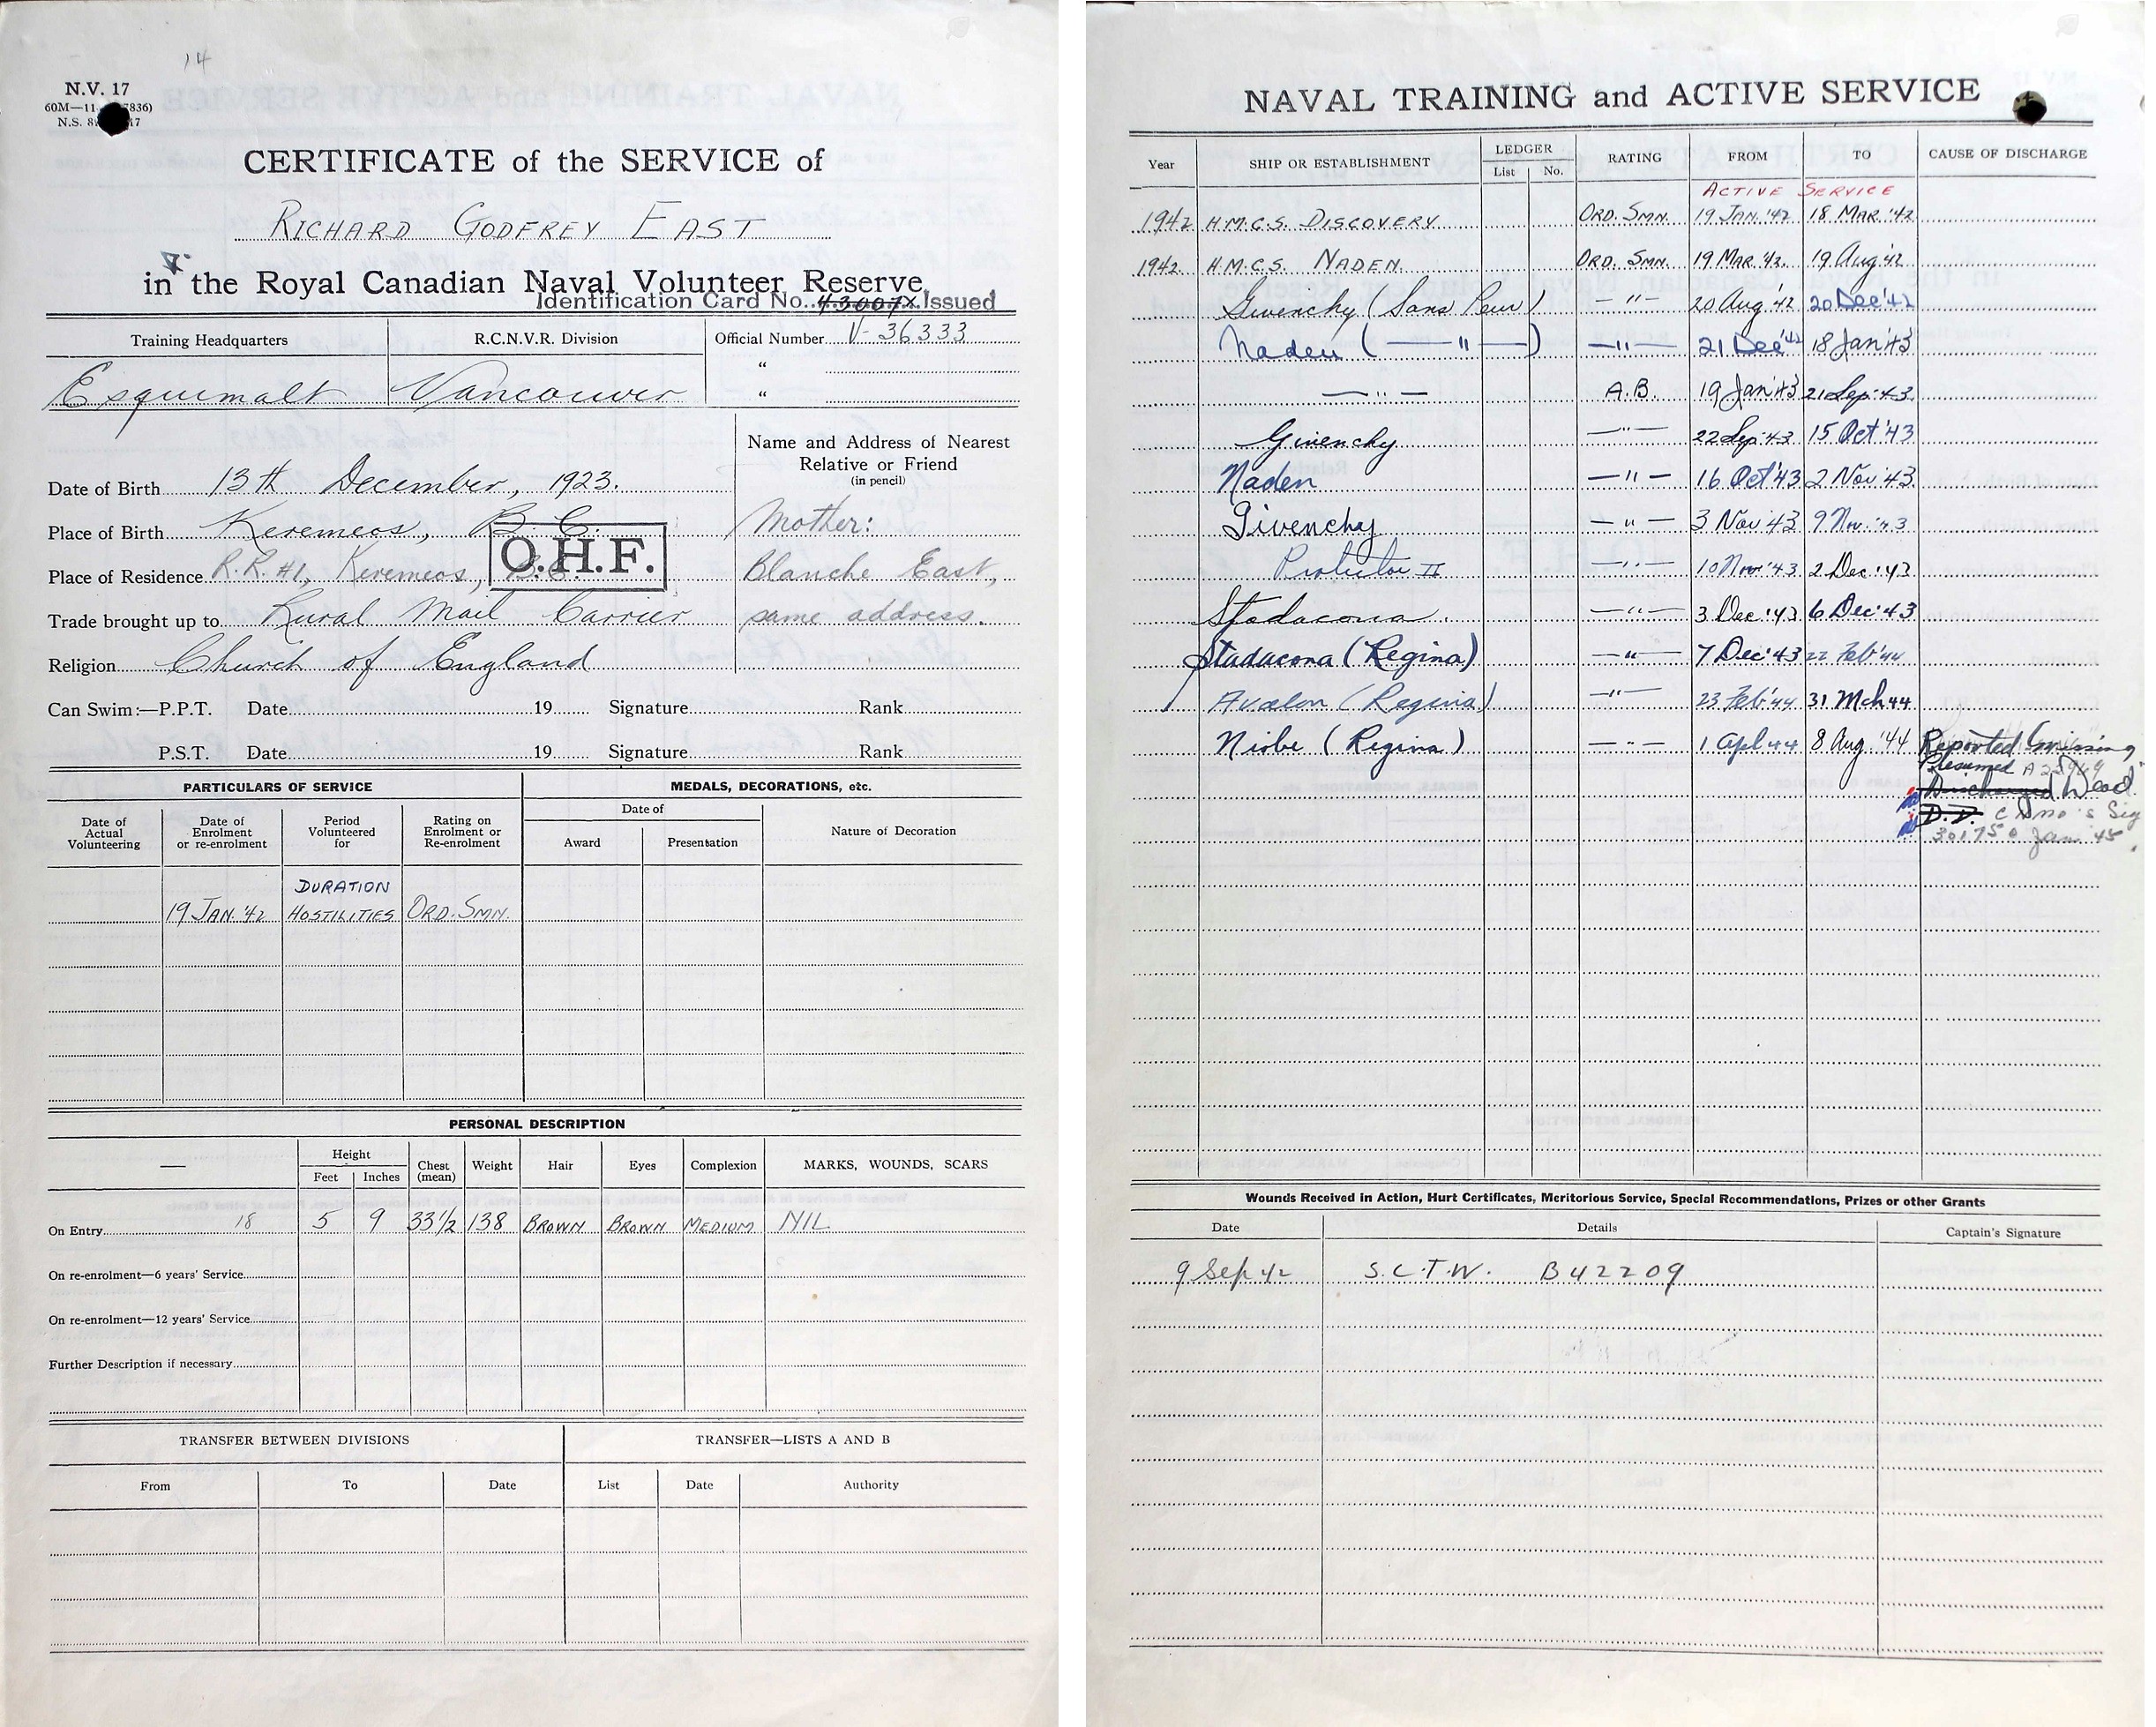 14
N.V. 17
60M—11- 7836)
N.S. 17
CERTIFICATE of the SERVICE of
RICHARD GODFREY EAST
in the Royal Canadian Naval Volunteer Reserve.
Identification Card No. 43007X Issued
Training Headquarters R.C.N.V.R. Division Official Number V-36333
"
Esquimalt Vancouver "
Name and Address of Nearest
Relative or Friend
(in pencil)
Date of Birth 13th December, 1923.
Place of Birth Keremeos, B.C. Mother:
O.H.F.
Place of Residence R.R. #1, Keremeos, B.C. Blanche East,
Trade brought up to Rural Mail Carrier same address.
Religion Church of England
Can Swim:—P.P.T. Date 19 Signature Rank
P.S.T. Date 19 Signature Rank
PARTICULARS OF SERVICE MEDALS, DECORATIONS, etc.
Date of Actual Volunteering Date of Enrolment or re-enrolment Period Volunteered for Rating on Enrolment or Re-enrolment Date of Award Presentation Nature of Decoration
DURATION
19 JAN. '42 HOSTILITIES ORD. SMN.
PERSONAL DESCRIPTION
— Height Feet Inches Chest (mean) Weight Hair Eyes Complexion MARKS, WOUNDS, SCARS
On Entry 18 5 9 33½ 138 BROWN BROWN MEDIUM NIL
On re-enrolment—6 years' Service
On re-enrolment—12 years' Service
Further Description if necessary
TRANSFER BETWEEN DIVISIONS TRANSFER—LISTS A AND B
From To Date List Date Authority
NAVAL TRAINING and ACTIVE SERVICE
Year SHIP OR ESTABLISHMENT LEDGER List No. RATING FROM TO CAUSE OF DISCHARGE
ACTIVE SERVICE
1942 H.M.C.S. DISCOVERY ORD. SMN. 19 JAN. '42 18 MAR. '42
1942 H.M.C.S. NADEN ORD. SMN. 19 MAR. '42. 19 Aug '42
Givenchy (Sans Peur) —"— 20 Aug '42 20 Dec '42
Naden (—"—) —"— 21 Dec '42 18 Jan '43
—"— A.B. 19 Jan '43 21 Sep. 43.
Givenchy —"— 22 Sep. 43 15 Oct '43
Naden —"— 16 Oct '43 2 Nov '43
Givenchy —"— 3 Nov '43 9 Nov. '43
Protector II —"— 10 Nov '43 2 Dec '43
Stadacona. —"— 3 Dec. '43 6 Dec '43
Stadacona (Regina) —"— 7 Dec '43 22 Feb '44
Avalon (Regina) —"— 23 Feb '44 31 Mch 44
Niobe (Regina) —"— 1 Apl 44 8 Aug. '44 Reported missing,
Presumed
Discharged Dead.
D.D. Sig
301750 Jan. 45
Wounds Received in Action, Hurt Certificates, Meritorious Service, Special Recommendations, Prizes or other Grants
Date Details Captain's Signature
9 Sep 42 S.C.T.W. B42209